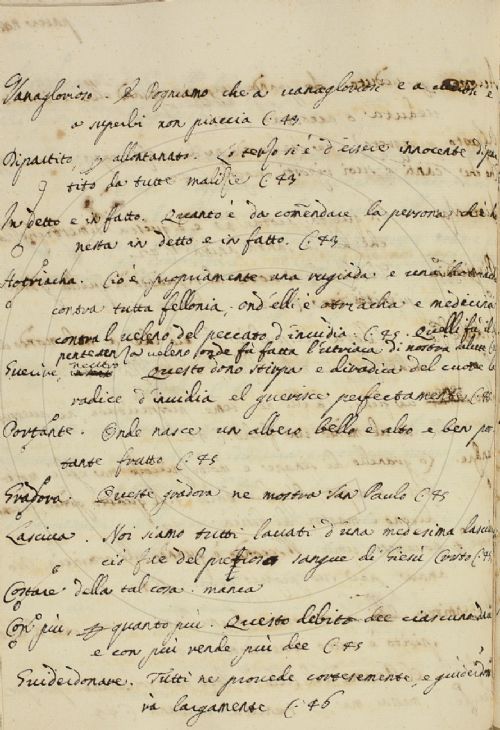 Vanaglorioso. Pogniamo che a vanagloriosi e a
o superbi non piaccia C. 43
Dipartito, allontanato. Lo terzo si è d'essere innocente dipar
tito da tutte malizie C. 43
In detto e in fatto. Quanto è da comendare la persona ch'è ho
nesta in detto e in fatto. C. 43
Hotriacha. Cio è propriamente una rugiada e una hotriacha
contra tutta fellonia, ond'elli è otriacha e medicina
contra l veleno del peccato d'invidia. C. 45. Quelli fu il
serpente senza veleno onde fu fatta l'utriaca di nostra salute
Guerire, Questo dono stirpa e diradica del cuore la
radice d'invidia el guerisce perfettamente C.
Portante. Onde nasce un albero bello e alto e ben por
tante frutto C. 45
Gradora. Queste gradora ne mostra San Paulo C. 45
Lasciva. Noi siamo tutti lavati d'una medesima lasci
cio fue del prezioso sangue di Giesù Cristo C. 45
Costare della tal cosa. manca
Con più, quanto più. Questo debito dee ciascuno
e con più rende più dee C. 45
Guiderdonare. Tutti ne procede cortesemente, e guiderdone
rà largamente C. 46